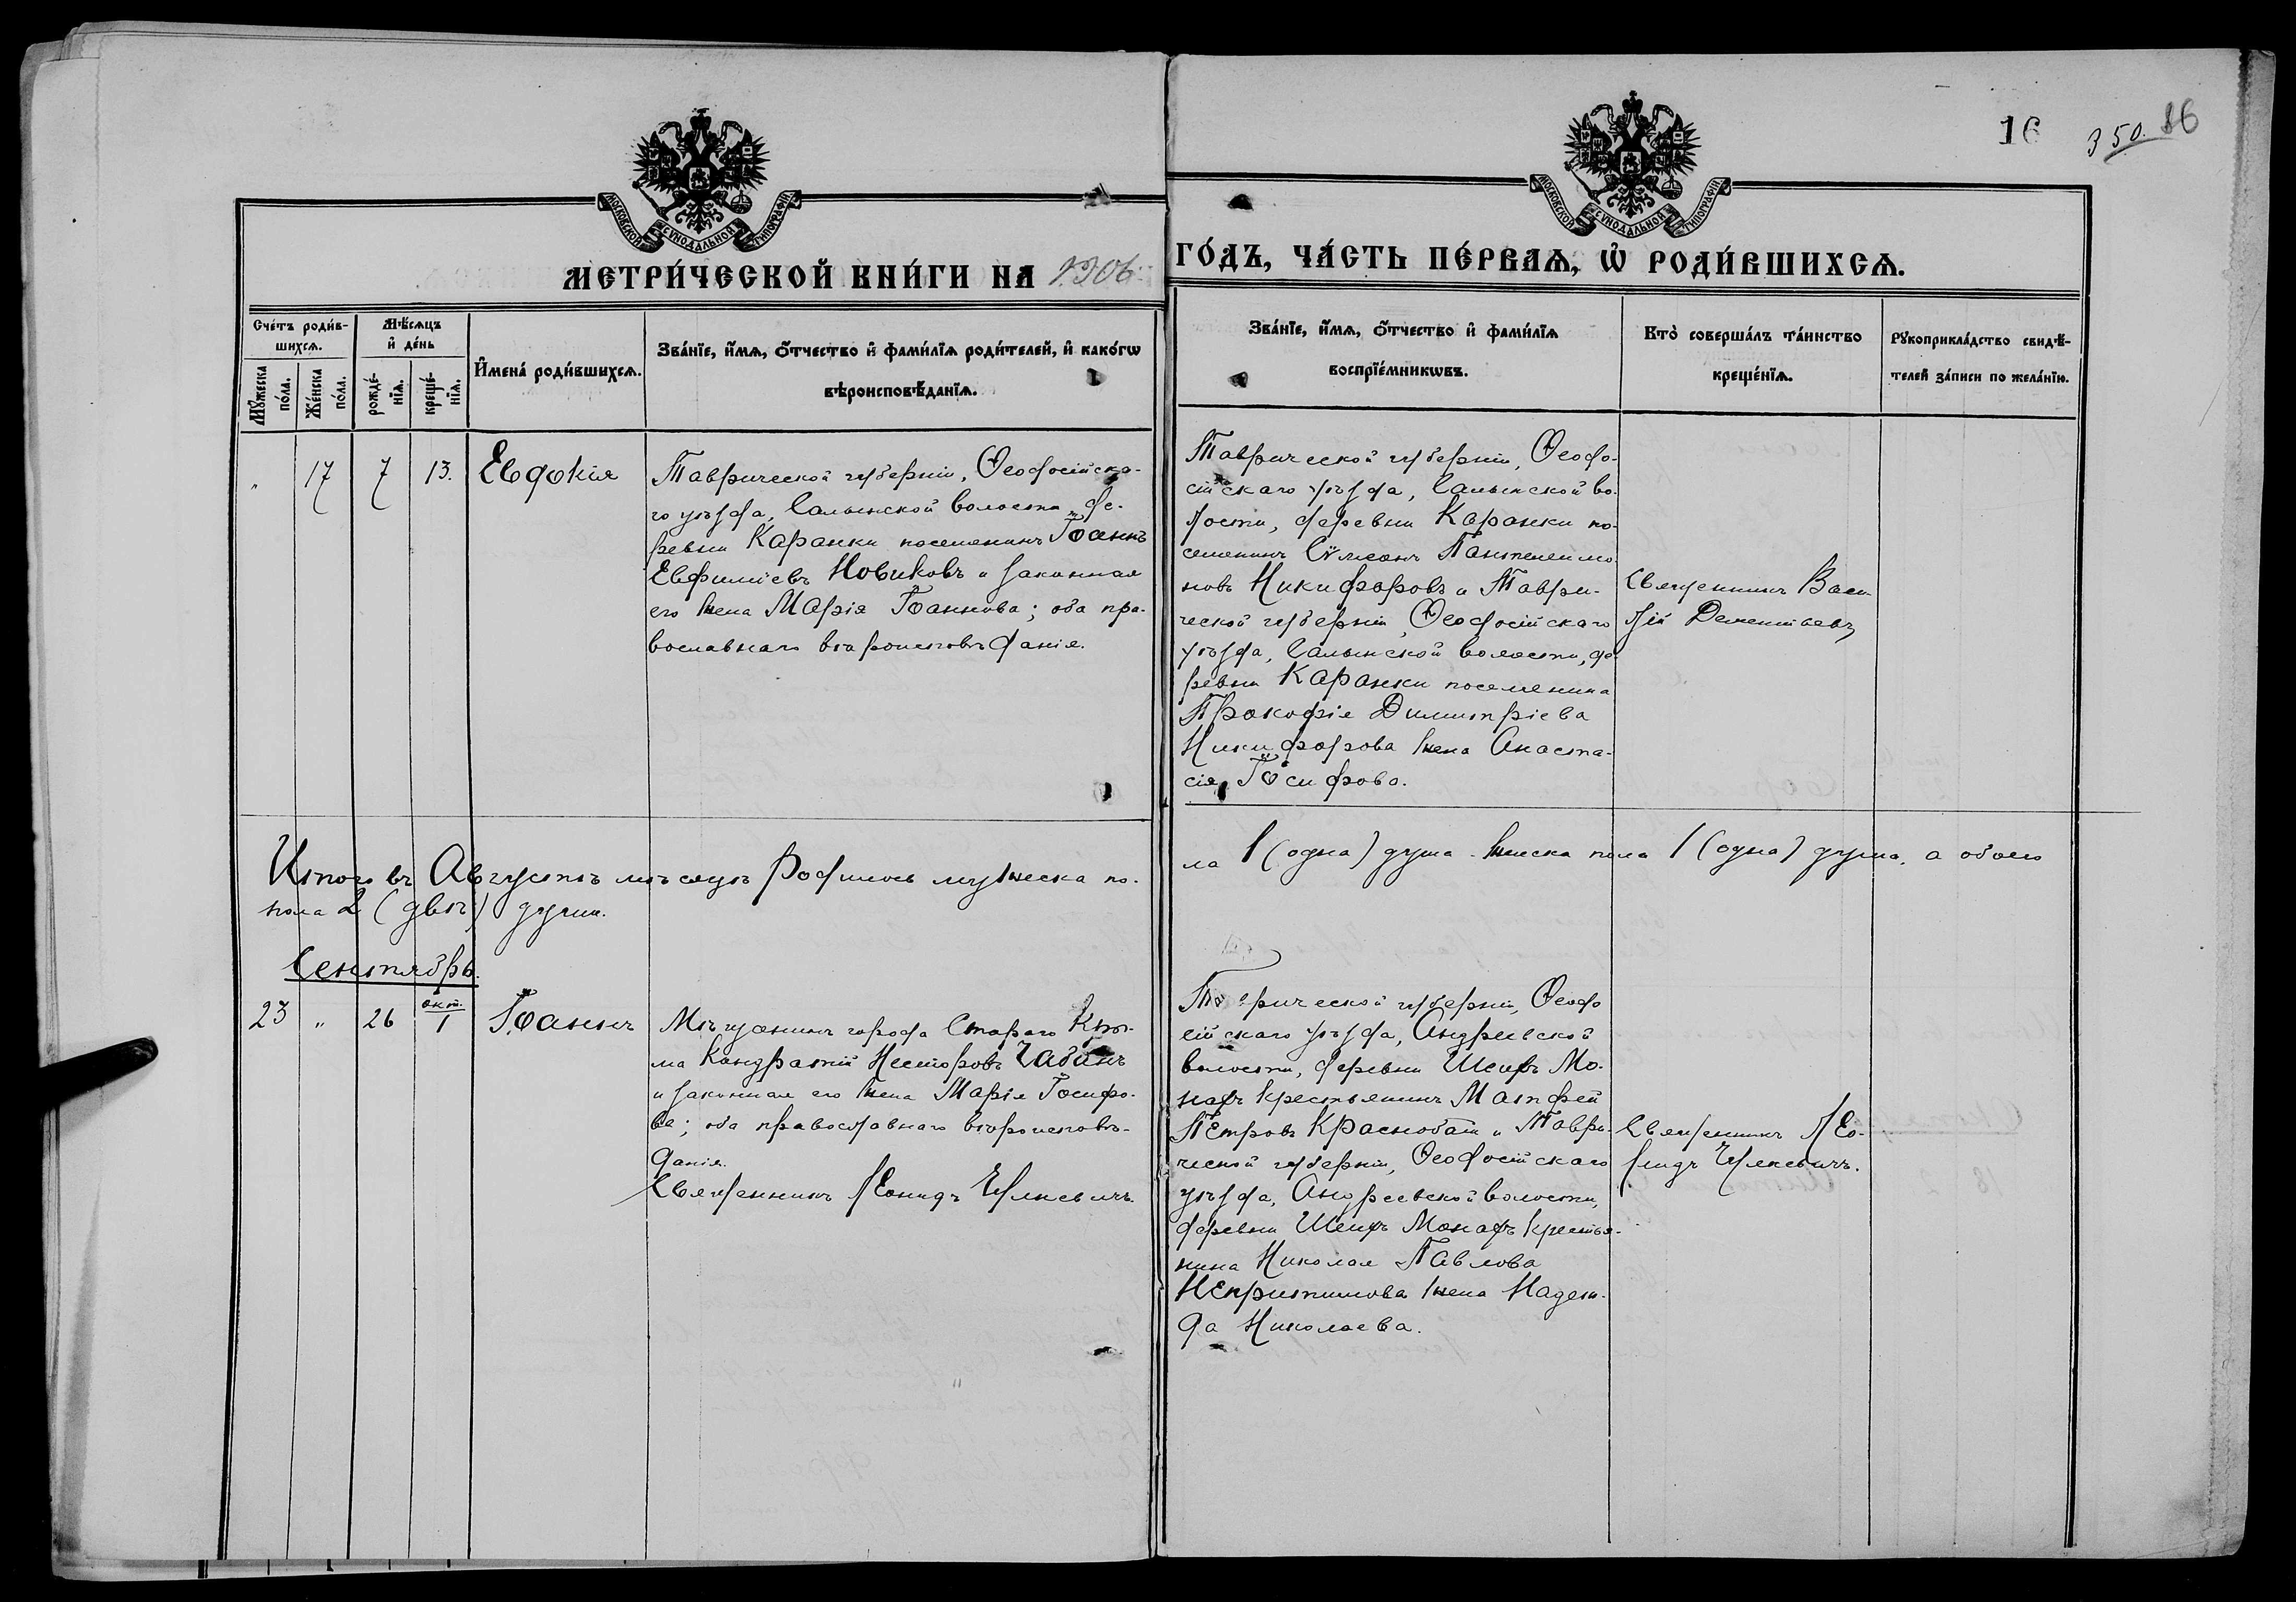 16 350. 86
МОСКОВСКОЙ СѴНОДАЛЬНОЙ ТИПОГРАФІИ
МОСКОВСКОЙ СѴНОДАЛЬНОЙ ТИПОГРАФІИ
МЕТРИ́ЧЕСКОЙ КНИ́ГИ НА 1906 ГО́ДЪ, ЧА́СТЬ ПЕ́РВАѦ, Ѡ РОДИ́ВШИХСѦ.
Сче́тъ роди́в-
шихсѧ.
Мꙋ́жеска по́ла.
Же́нска по́ла.
Мѣ́сѧцъ и҆ де́нь
рожде́-нїѧ.
креще́-нїѧ.
И҆мена̀ роди́вшихсѧ.
Зва́нїе, и҆́мѧ, ѻ҆́тчество и҆ фами́лїѧ роди́телей, и҆ како́гѡ
вѣроисповѣ́данїѧ.
Зва́нїе, и҆́мѧ, ѻ҆́тчество и҆ фами́лїѧ
воспрїе́мникѡвъ.
Кто̀ соверша́лъ та́инство
креще́нїѧ.
Рꙋкоприкла́дство свидѣ́-
телей за́писи по жела́нїю.
„ 17 7 13. Евдокія
Таврической губерніи, Ѳеодосійска-
го уѣзда, Салынской волости, де-
ревни Каранки поселянинъ Іоаннъ
Евфиміевъ Новиковъ и законная
его жена Марія Іоаннова; оба пра-
вославнаго вѣроисповѣданія.
Таврической губерніи, Ѳеодо-
сійскаго уѣзда, Салынской во-
лости, деревни Каранки по-
селянинъ Сѵмеонъ Пантелеимо-
новъ Никифоровъ и Таври-
ческой губерніи, Ѳеодосійскаго
уѣзда, Салынской волости, де-
ревни Каранки поселянина
Прокофія Димитріева
Никифорова жена Анаста-
сія Іосифова.
Священникъ Васи-
лій Дементьевъ
Итого въ Августѣ мѣсяцѣ родилось мужеска по-
ла 1 (одна) душа. женска пола 1 (одна) душа, а обоего
пола 2 (двѣ) души.
Сентябрь.
23 „ 26 окт. 1 Іоаннъ
Мѣщанинъ города Стараго Кры-
ма Кондратій Несторовъ Чабанъ
и законная его жена Марія Іосифо-
ва; оба православнаго вѣроисповѣ-
данія.
Священникъ Леонидъ
Таврической губерніи, Ѳеодо
сійскаго уѣзда, Андреевской
волости, деревни Шеихъ Мо-
нахъ крестьянинъ Матфей
Петровъ Краснобай и Таври-
ческой губерніи, Ѳеодосійскаго
уѣзда, Андреевской волости,
деревни Шеихъ Монахъ крестья-
нина Николая Павлова
жена Надеж-
да Николаева.
Священникъ Лео-
нидъ